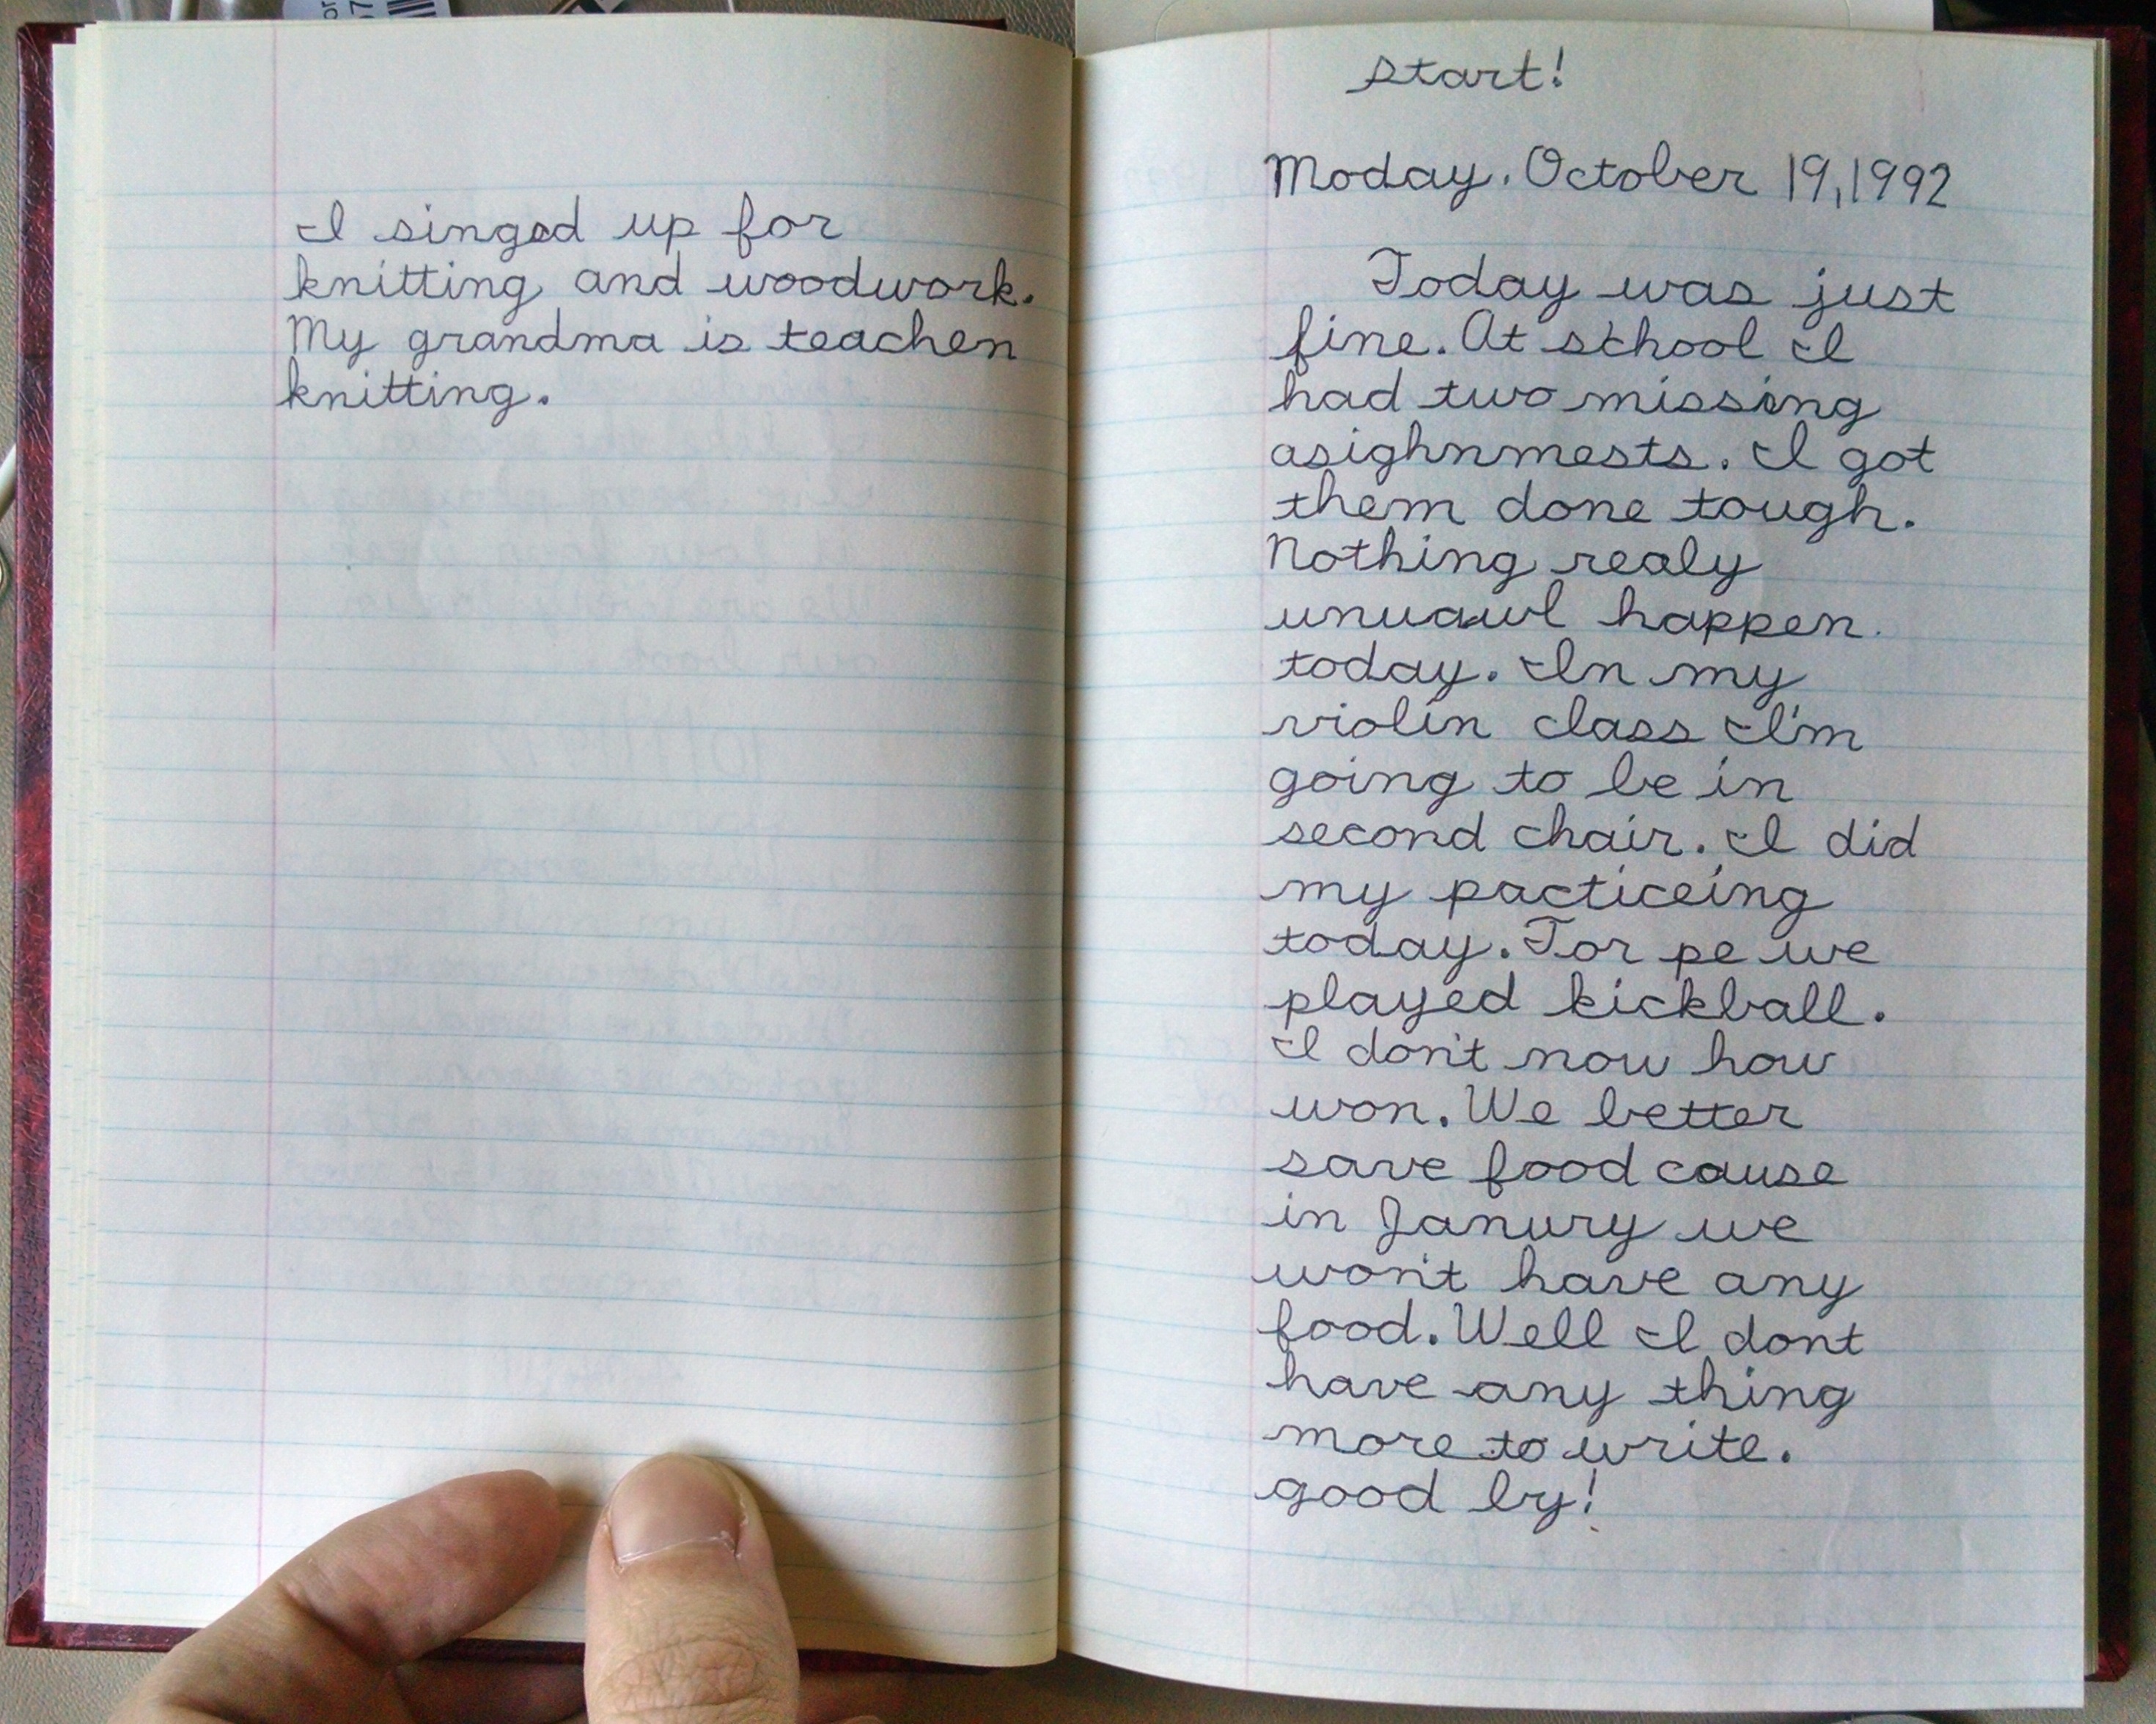 I singed up for
knitting and woodwork.
My grandma is teachen
knitting.
start!
Moday. October 19, 1992
Today was just
fine. At school I
had two missing
asighnmests. I got
them done tough.
Nothing realy
unuawl happen.
today. In my
violin class I'm
going to be in
second chair. I did
my pacticeing
today. For pe we
played kickball.
I don't now how
won. We better
save food cause
in Janury we
won't have any
food. Well I dont
have any thing
more to write.
good by!